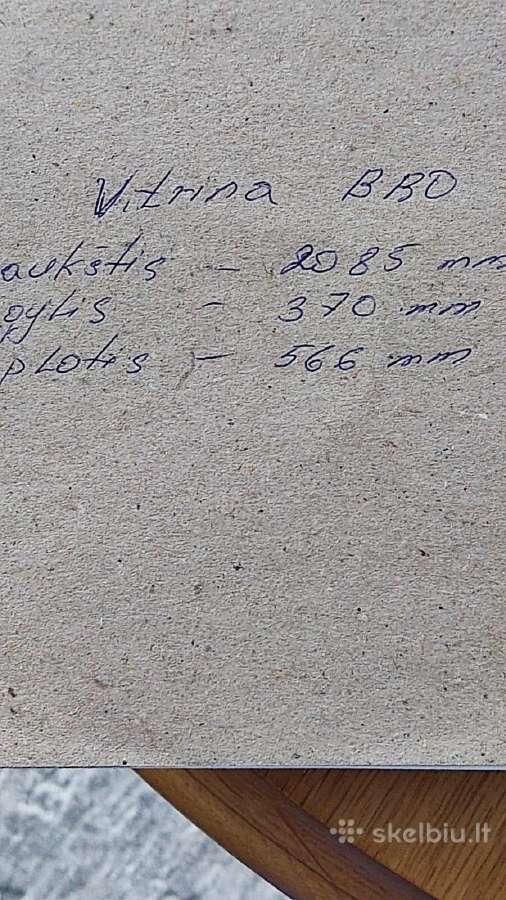 Vitrina BRO
aukštis - 2085 mm
gylis - 370 mm
plotis - 566 mm
skelbiu.lt